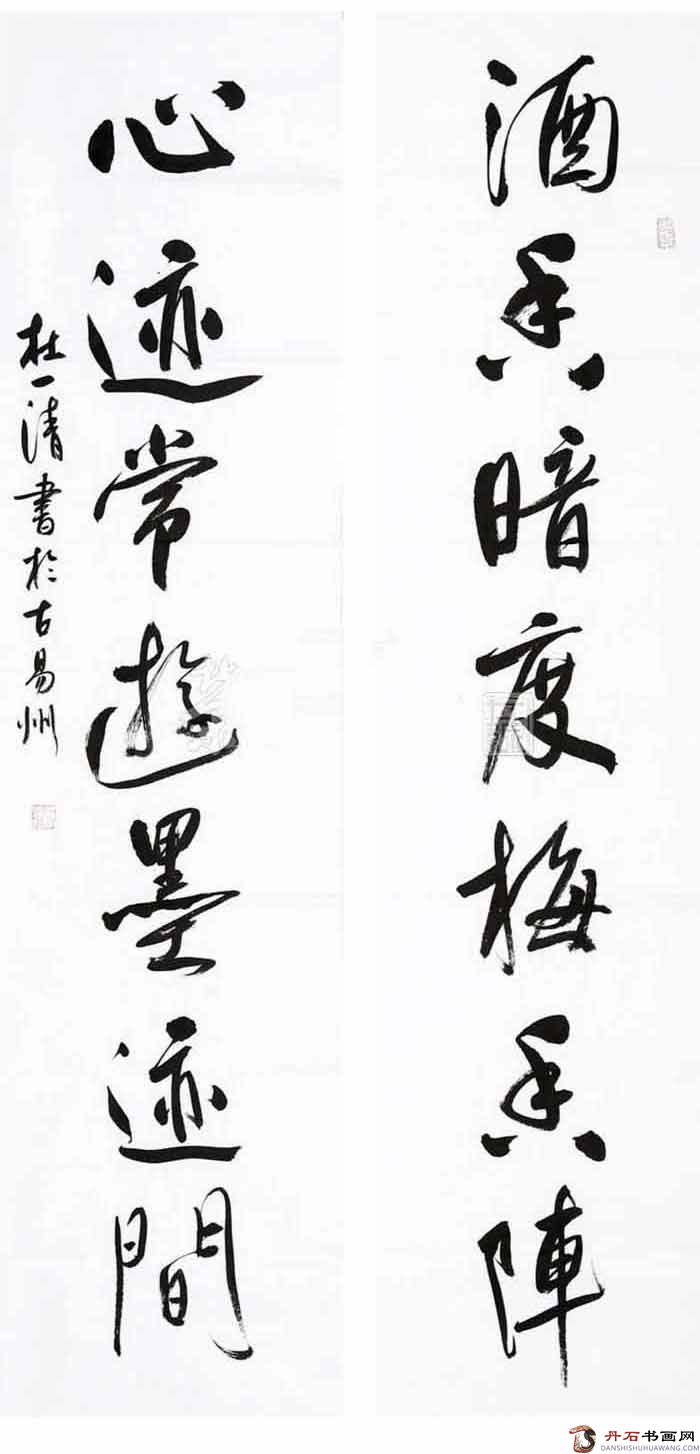 酒香暗度梅香陣
心迹常遊墨迹間
杜一清書於古易州
丹石书画网
DANSHISHUHUAWANG.COM